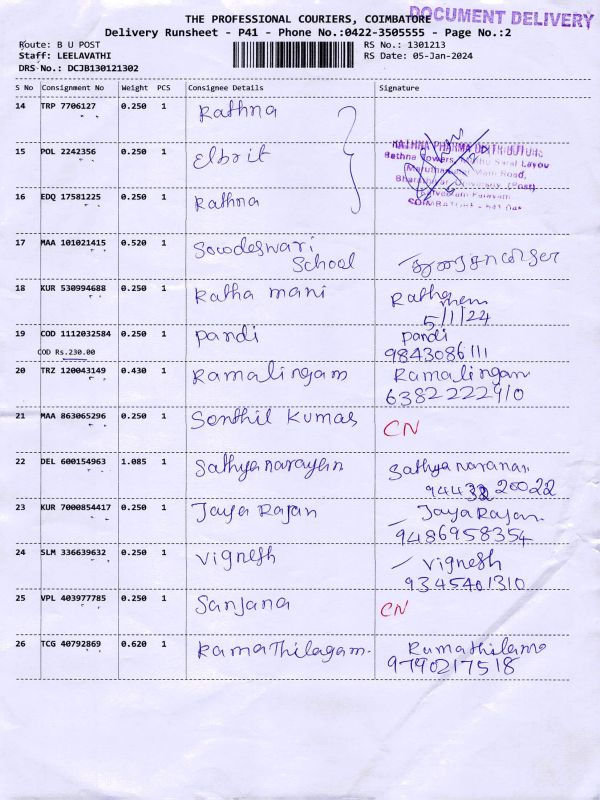 THE PROFESSIONAL COURIERS, COIMBATORE
DOCUMENT DELIVERY
Delivery Runsheet - P41 - Phone No.:0422-3505555 - Page No.:2
Route: B U POST
RS No.: 1301213
Staff: LEELAVATHI
RS Date: 05-Jan-2024
DRS-No.: DCJB130121302
S No Consignment No Weight PCS Consignee Details Signature
14 TRP 7706127 0.250 1 Rathna
RATHNA PHARMA DISTRIBUTORS
15 POL 2242356 0.250 1 Elbrit
Rathna Towers,
Main Road,
16 EDQ 17581225 0.250 1 Rathna
17 MAA 101021415 0.520 1 Sowdeswari
School
18 KUR 530994688 0.250 1 Ratha mani
5/1/24
19 COD 1112032584 0.250 1 Pandi Pandi
COD Rs.230.00 9843086111
20 TRZ 120043149 0.430 1 Ramalingam Ramalingam
6382222910
21 MAA 863065296 0.250 1 Senthil Kumar CN
22 DEL 600154963 1.085 1 Sathyanarayan Sathyanaranan
23 KUR 7000854417 0.250 1 Jaya Rajan Jaya Rajan
9486958354
24 SLM 336639632 0.250 1 Vignesh Vignesh
9345401310
25 VPL 403977785 0.250 1 Sanjana CN
26 TCG 40792869 0.620 1 RamaThilagam.
9790217518